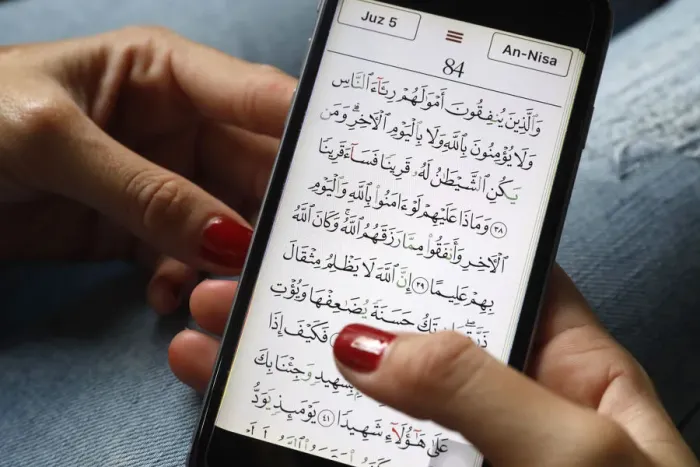 Juz 5
An-Nisa
84
وَٱلَّذِينَ يُنفِقُونَ أَمْوَٰلَهُمْ رِئَآءَ ٱلنَّاسِ
وَلَا يُؤْمِنُونَ بِٱللَّهِ وَلَا بِٱلْيَوْمِ ٱلْأَخِرِۗ وَمَن
يَكُنِ ٱلشَّيْطَٰنُ لَهُۥ قَرِينًا فَسَآءَ قَرِينًا
٣٨ وَمَاذَا عَلَيْهِمْ لَوْ ءَامَنُوا۟ بِٱللَّهِ وَٱلْيَوْمِ
ٱلْأَخِرِ وَأَنفَقُوا۟ مِمَّا رَزَقَهُمُ ٱللَّهُۚ وَكَانَ ٱللَّهُ
بِهِمْ عَلِيمًا ٣٩ إِنَّ ٱللَّهَ لَا يَظْلِمُ مِثْقَالَ
ذَرَّةٍۖ تَكُ حَسَنَةً يُضَٰعِفْهَا وَيُؤْتِ
فَكَيْفَ إِذَا
بِشَهِيدٍ وَجِئْنَا بِكَ
عَلَىٰ هَٰٓؤُلَآءِ شَهِيدًا ٤١ يَوْمَئِذٍ يَوَدُّ